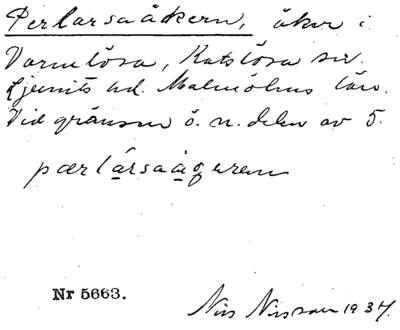 Perlarsaåkern, åker i
Varmlösa, Katslösa sn.
Ljunits hd. Malmöhus län.
Vid gränsen ö. n. delen av 5.
pærlạrsaạ̊qeren
Nr 5663.
Nils Nilsson 1937.